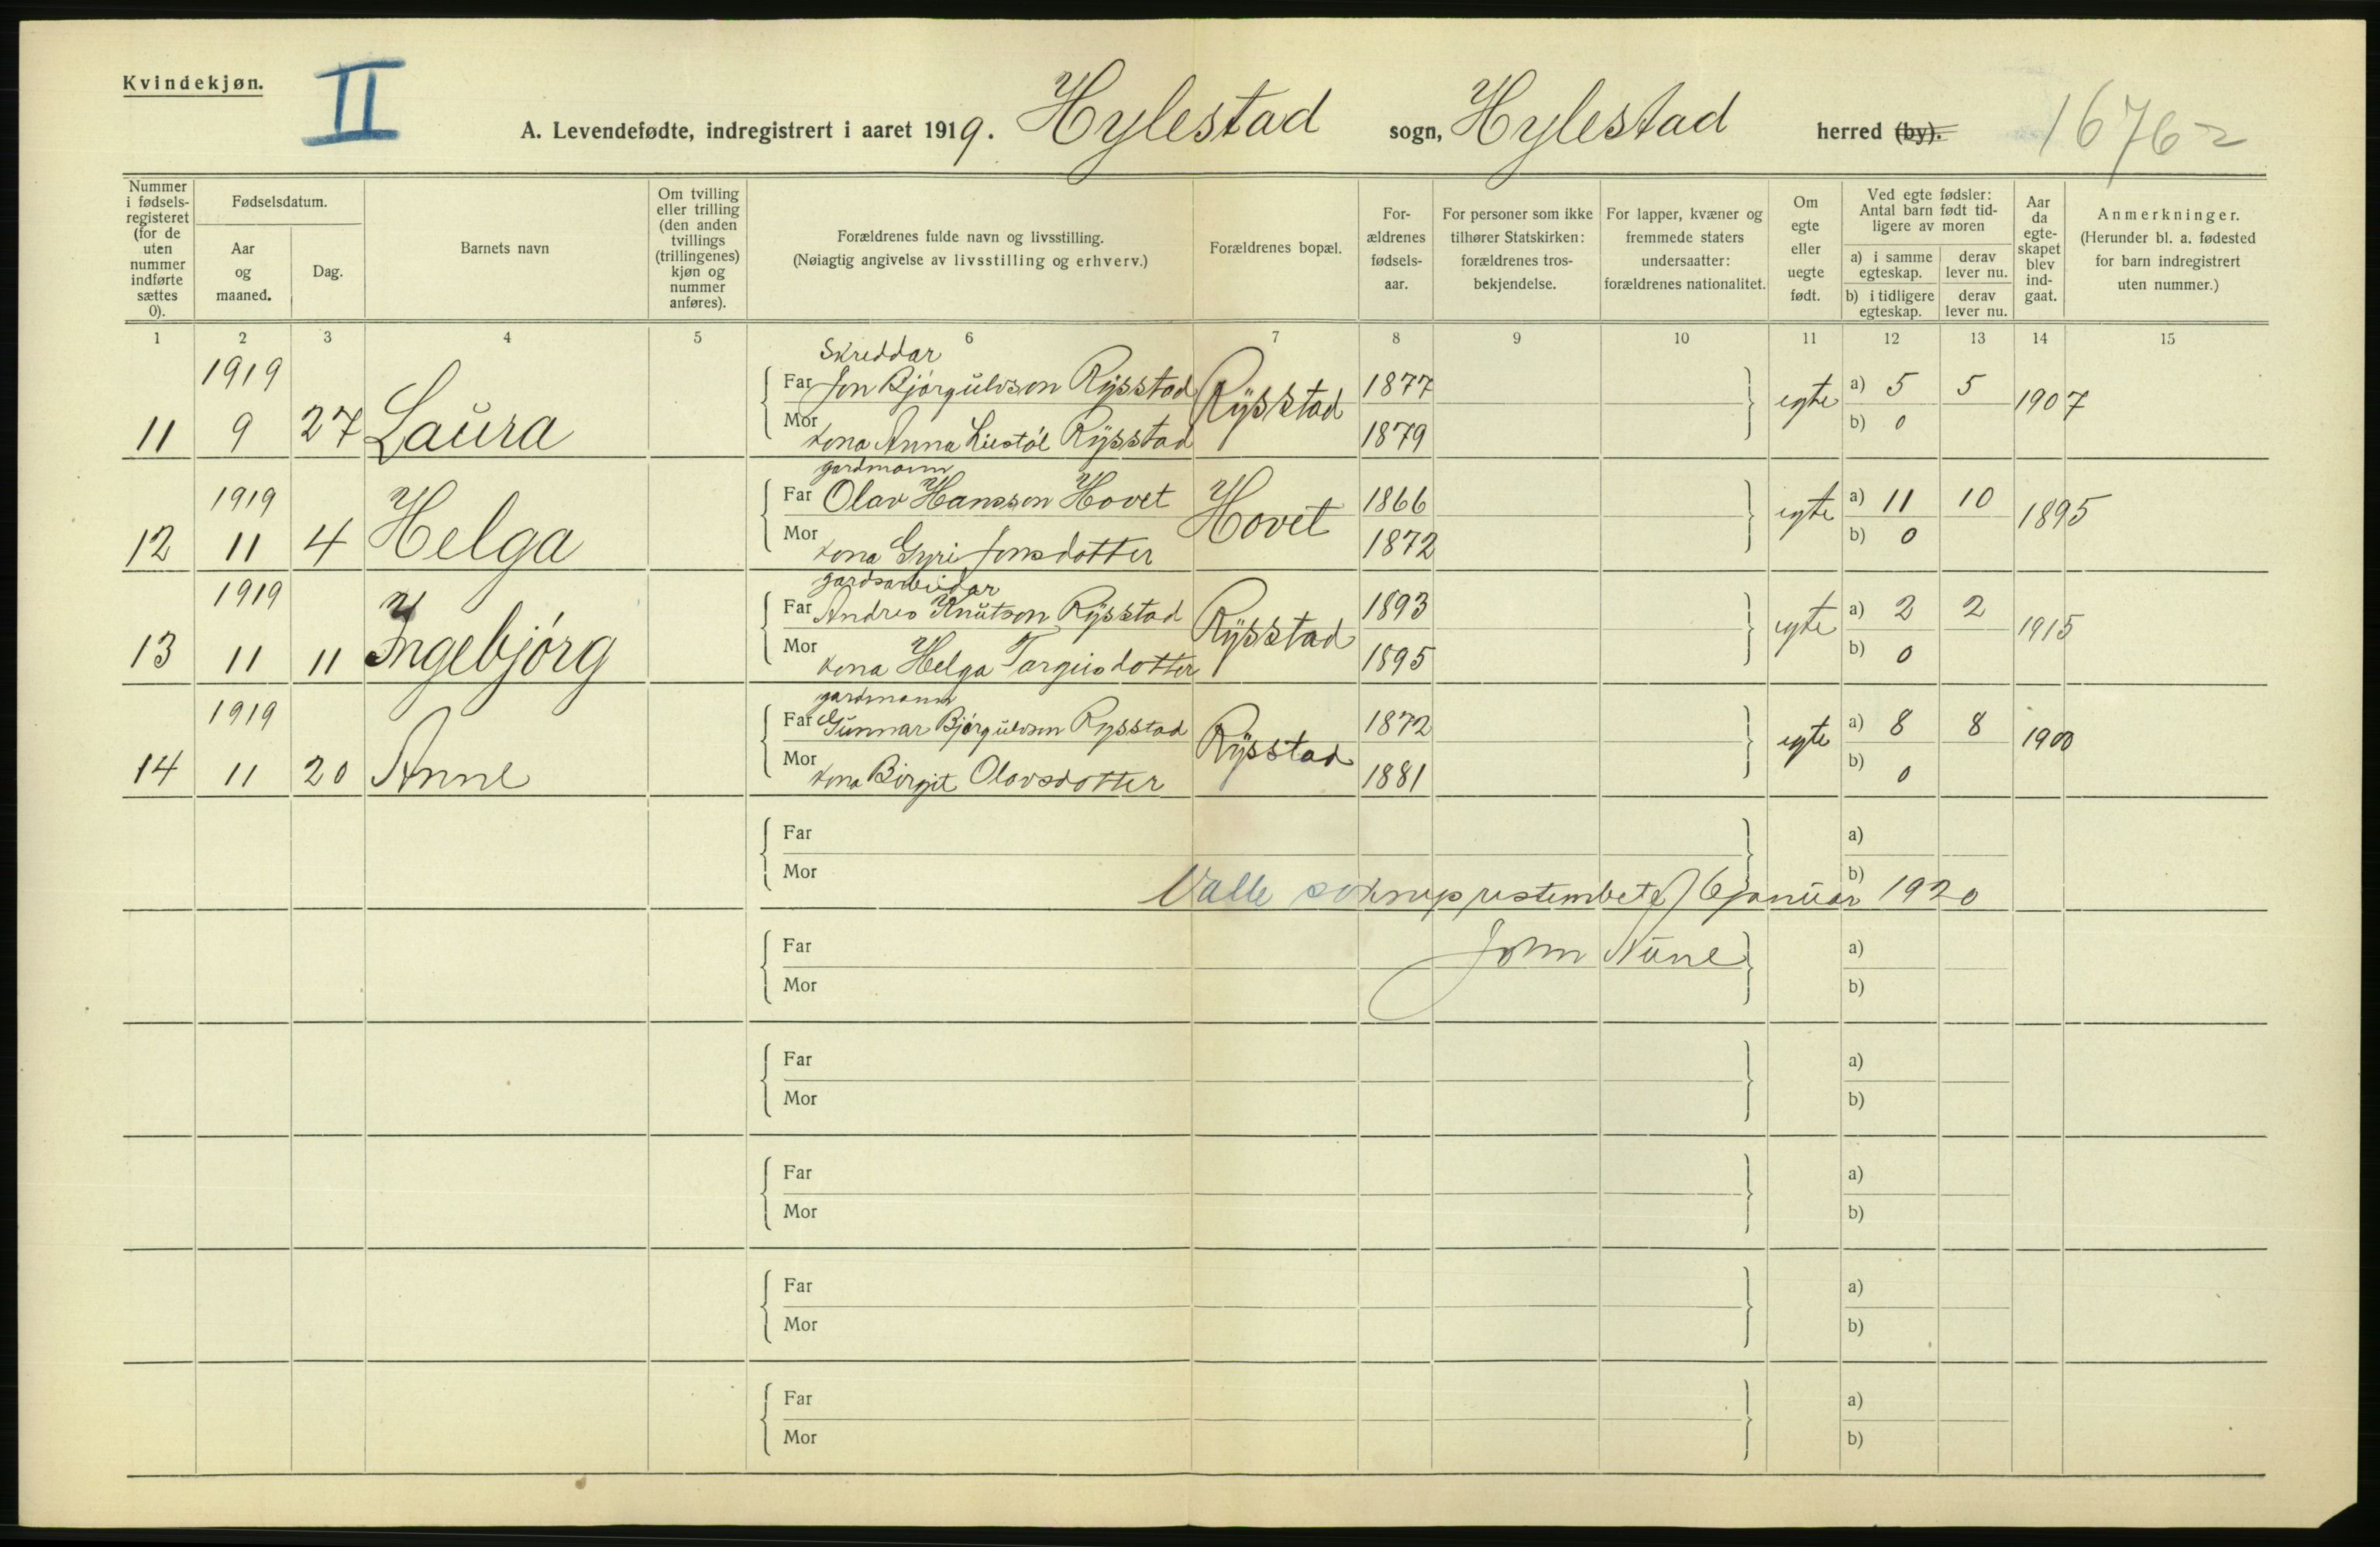 Kvindekjøn.
II
A. Levendefødte, indregistrert i aaret 1919. Hylestad sogn, Hylestad herred (by).
16762
Nummer i fødselsregisteret (for de uten nummer indførte sættes 0).
Fødselsdatum.
Aar og maaned.
Dag.
Barnets navn
Om tvilling eller trilling (den anden tvillings (trillingenes) kjøn og nummer anføres).
Forældrenes fulde navn og livsstilling.
(Nøiagtig angivelse av livsstilling og erhverv.)
Forældrenes bopæl.
Forældrenes fødselsaar.
For personer som ikke tilhører Statskirken: forældrenes trosbekjendelse.
For lapper, kvæner og fremmede staters undersaatter: forældrenes nationalitet.
Om egte eller uegte født.
Ved egte fødsler: Antal barn født tidligere av moren
a) i samme egteskap.
derav lever nu.
b) i tidligere egteskap.
derav lever nu.
Aar da egteskapet blev indgaat.
Anmerkninger.
(Herunder bl. a. fødested for barn indregistrert uten nummer.)
1 2 3 4 5 6 7 8 9 10 11 12 13 14 15
Skreddar
1919 Far Jon Bjørgulvson Rysstad Rysstad 1877 egte a) 5 5 1907
11 9 27 Laura Mor kona Anna Liestøl Rysstad 1879 b) 0
gardmann
1919 Far Olav Hansson Hovet Hovet 1866 egte a) 11 10 1895
12 11 4 Helga Mor kona Gyri Jonsdotter 1872 b) 0
gardsarbeidar
1919 Far Andres Knutson Rysstad Rysstad 1893 egte a) 2 2 1915
13 11 11 Ingebjørg Mor kona Helga Targeisdotter 1895 b) 0
gardmann
1919 Far Gunnar Bjørgulvson Rysstad Rysstad 1872 egte a) 8 8 1900
14 11 20 Anne Mor kona Birgit Olavsdotter 1881 b) 0
Far a)
Mor b)
Valle sokneprestembete 6 januar 1920
Far a)
John Nune
Mor b)
Far a)
Mor b)
Far a)
Mor b)
Far a)
Mor b)
Far a)
Mor b)